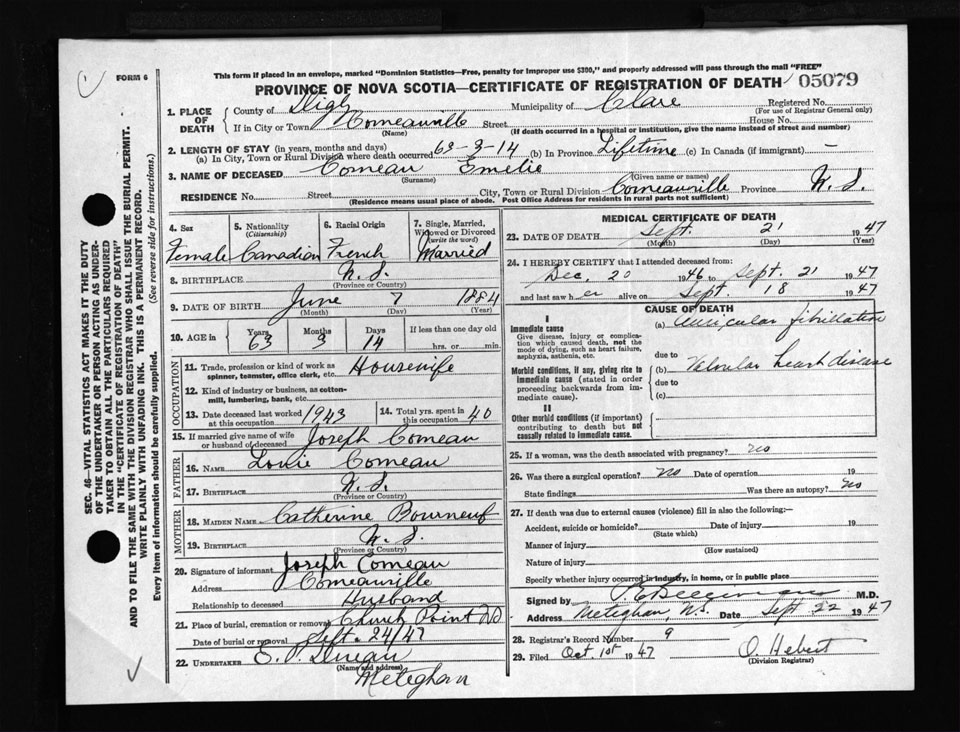 FORM 6
This form if placed in an envelope, marked "Dominion Statistics—Free, penalty for improper use $300," and properly addressed will pass through the mail "FREE"
PROVINCE OF NOVA SCOTIA—CERTIFICATE OF REGISTRATION OF DEATH 05079
1. PLACE OF DEATH County of Digby Municipality of Clare Registered No.
(For use of Registrar General only)
If in City or Town Comeauville Street House No.
(Name) (If death occurred in a hospital or institution, give the name instead of street and number)
2. LENGTH OF STAY (in years, months and days)
(a) In City, Town or Rural Division where death occurred 63-3-14 (b) In Province Lifetime (c) In Canada (if immigrant) —
3. NAME OF DECEASED Comeau Emelie
(Surname) (Given name or names)
RESIDENCE No. Street City, Town or Rural Division Comeauville Province N.S.
(Residence means usual place of abode. Post Office Address for residents in rural parts not sufficient)
4. Sex 5. Nationality (Citizenship) 6. Racial Origin 7. Single, Married, Widowed or Divorced (write the word)
Female Canadian French Married
8. BIRTHPLACE N.S.
(Province or Country)
9. DATE OF BIRTH June 7 1884
(Month) (Day) (Year)
10. AGE in Years Months Days If less than one day old
63 3 14 hrs. or min.
OCCUPATION
11. Trade, profession or kind of work as spinner, teamster, office clerk, etc. Housewife
12. Kind of industry or business, as cotton-mill, lumbering, bank, etc.
13. Date deceased last worked at this occupation 1943 14. Total yrs. spent in this occupation 40
15. If married give name of wife or husband of deceased Joseph Comeau
FATHER
16. Name Louie Comeau
17. Birthplace N.S.
(Province or Country)
MOTHER
18. Maiden Name Catherine Bourneuf
19. Birthplace N.S.
(Province or Country)
20. Signature of informant Joseph Comeau
Address Comeauville
Relationship to deceased Husband
21. Place of burial, cremation or removal Church Point NS
Date of burial or removal Sept. 24/47
22. UNDERTAKER
(Name and address)
Meteghan
MEDICAL CERTIFICATE OF DEATH
23. DATE OF DEATH Sept. 21 1947
(Month) (Day) (Year)
24. I HEREBY CERTIFY that I attended deceased from:
Dec. 20 1946 to Sept. 21 1947
and last saw her alive on Sept. 18 1947
CAUSE OF DEATH
I
Immediate cause
Give disease, injury or complication which caused death, not the mode of dying, such as heart failure, asphyxia, asthenia, etc.
(a) Auricular fibrillation
due to
Morbid conditions, if any, giving rise to immediate cause (stated in order proceeding backwards from immediate cause).
(b) Valvular heart disease
due to
(c)
II
Other morbid conditions (if important) contributing to death but not causally related to immediate cause.
25. If a woman, was the death associated with pregnancy? no
26. Was there a surgical operation? no Date of operation 19
State findings Was there an autopsy? no
27. If death was due to external causes (violence) fill in also the following:—
Accident, suicide or homicide? Date of injury 19
(State which)
Manner of injury
(How sustained)
Nature of injury
Specify whether injury occurred in industry, in home, or in public place
Signed by M.D.
Address Meteghan, N.S. Date Sept 22 1947
28. Registrar's Record Number 9
29. Filed Oct. 1st 1947 O. Hebert
(Division Registrar)
SEC. 46—VITAL STATISTICS ACT MAKES IT THE DUTY
OF THE UNDERTAKER OR PERSON ACTING AS UNDER-
TAKER TO OBTAIN ALL THE PARTICULARS REQUIRED
IN THE "CERTIFICATE OF REGISTRATION OF DEATH"
AND TO FILE THE SAME WITH THE DIVISION REGISTRAR WHO SHALL ISSUE THE BURIAL PERMIT.
WRITE PLAINLY WITH UNFADING INK. THIS IS A PERMANENT RECORD.
Every item of information should be carefully supplied. (See reverse side for instructions.)